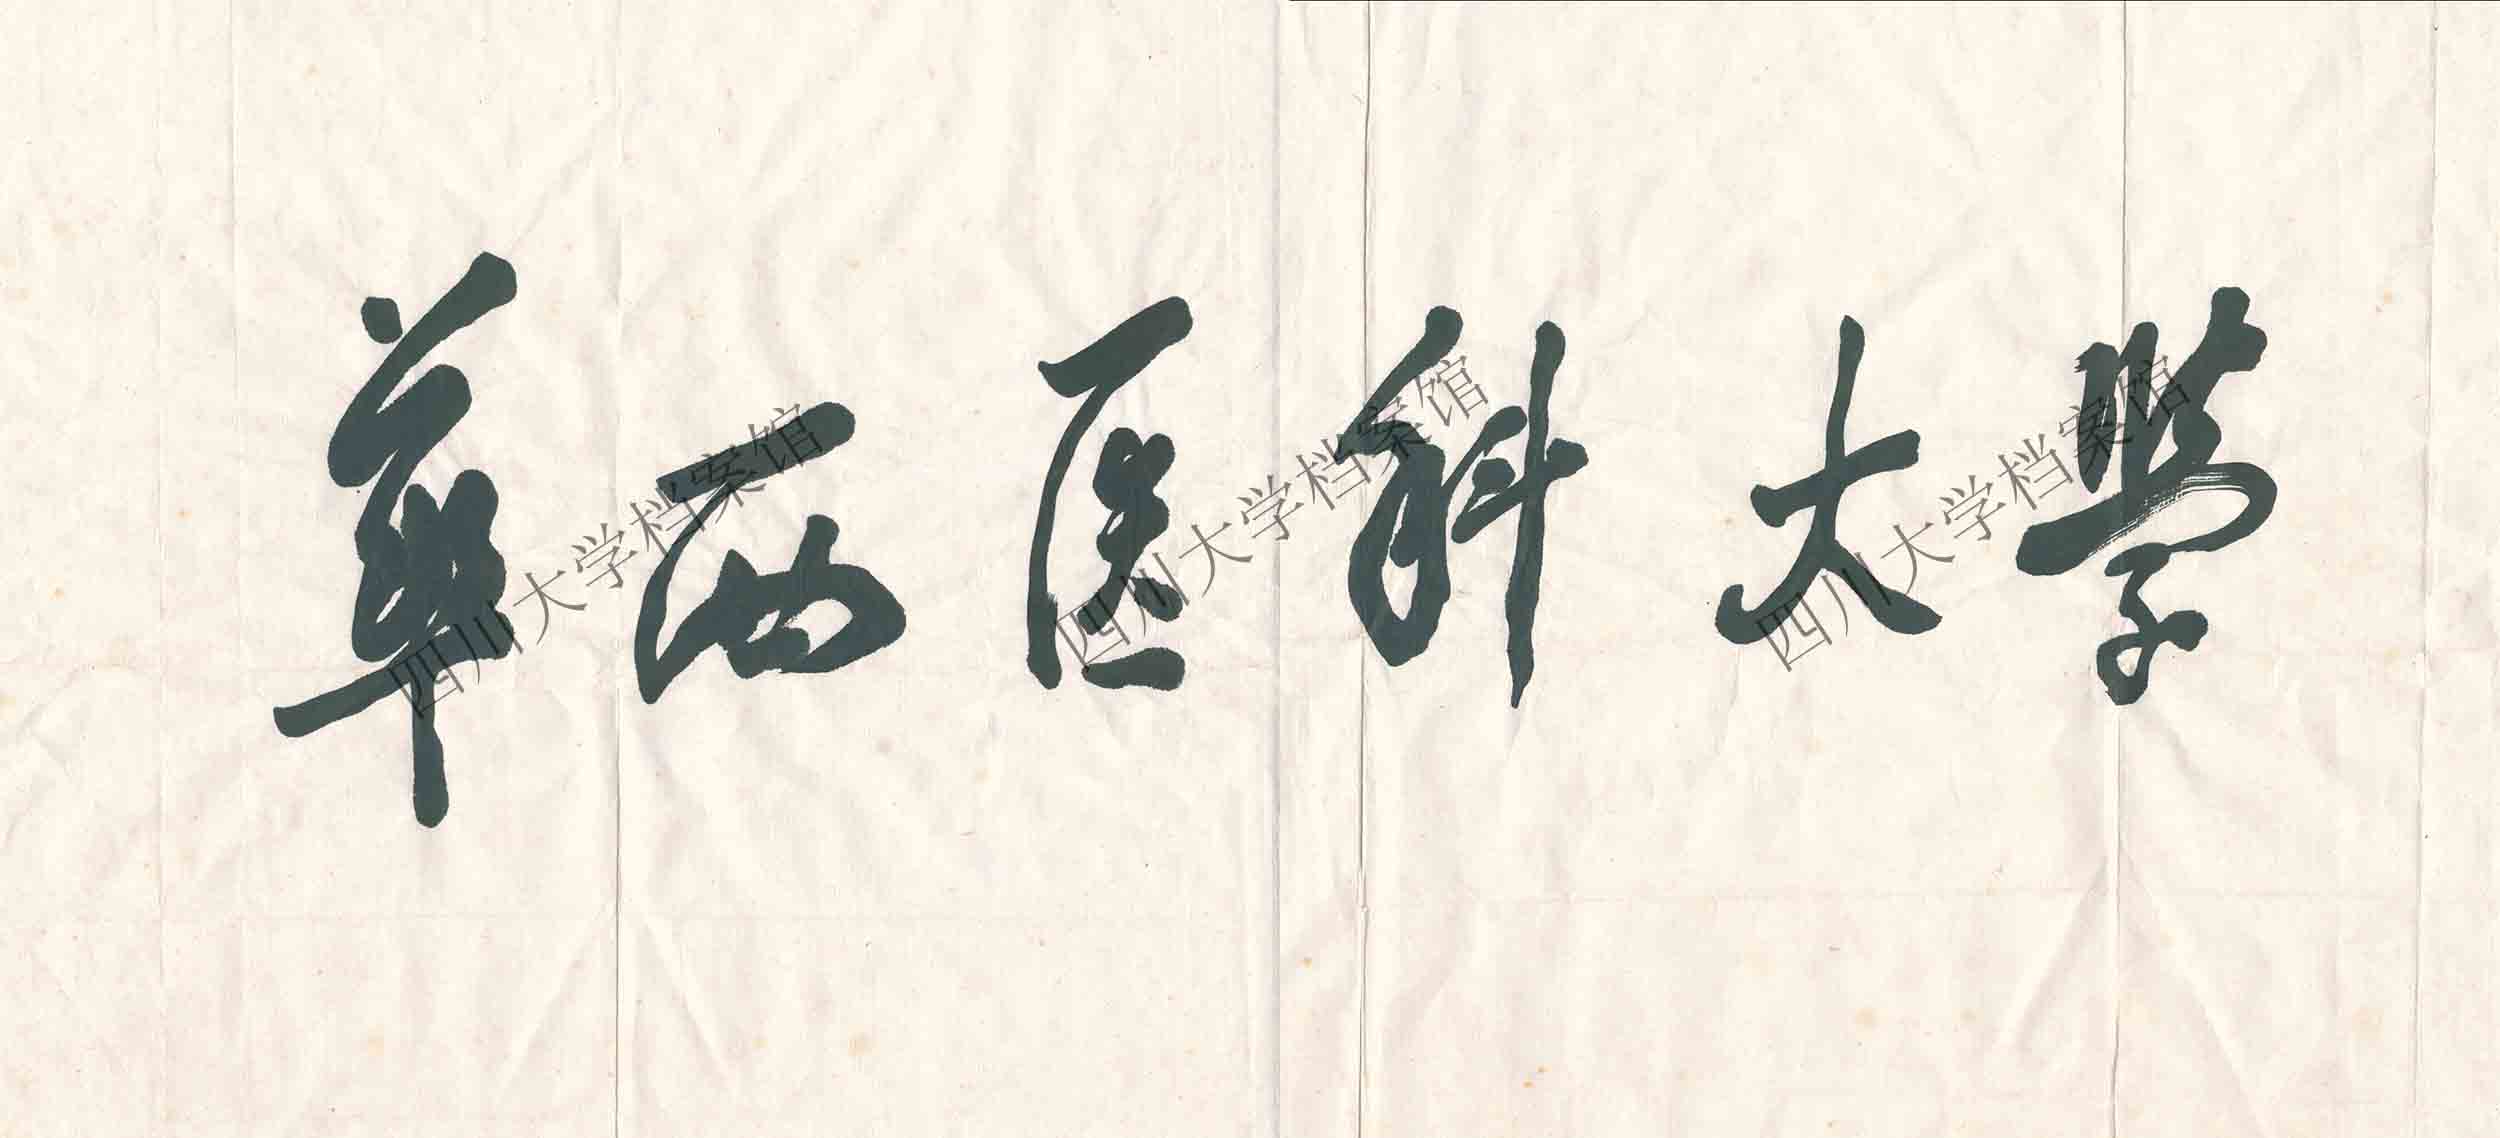 華西医科大學
四川大学档案馆
四川大学档案馆
四川大学档案馆